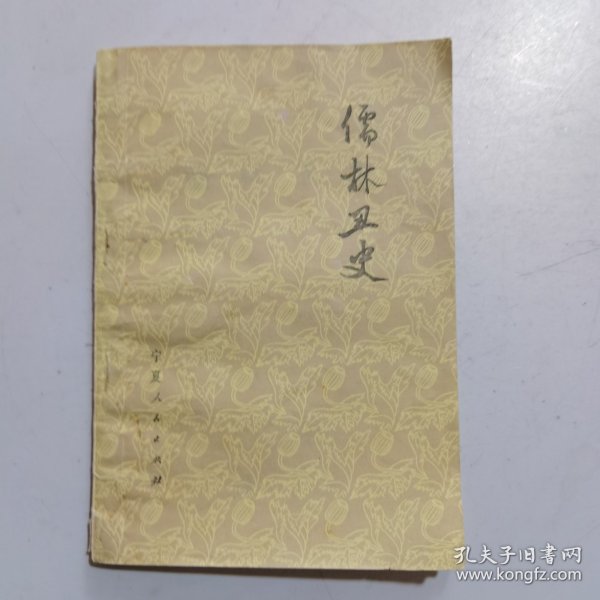 儒林丑史
宁夏人民出版社
孔夫子旧書网
www.kongfz.com